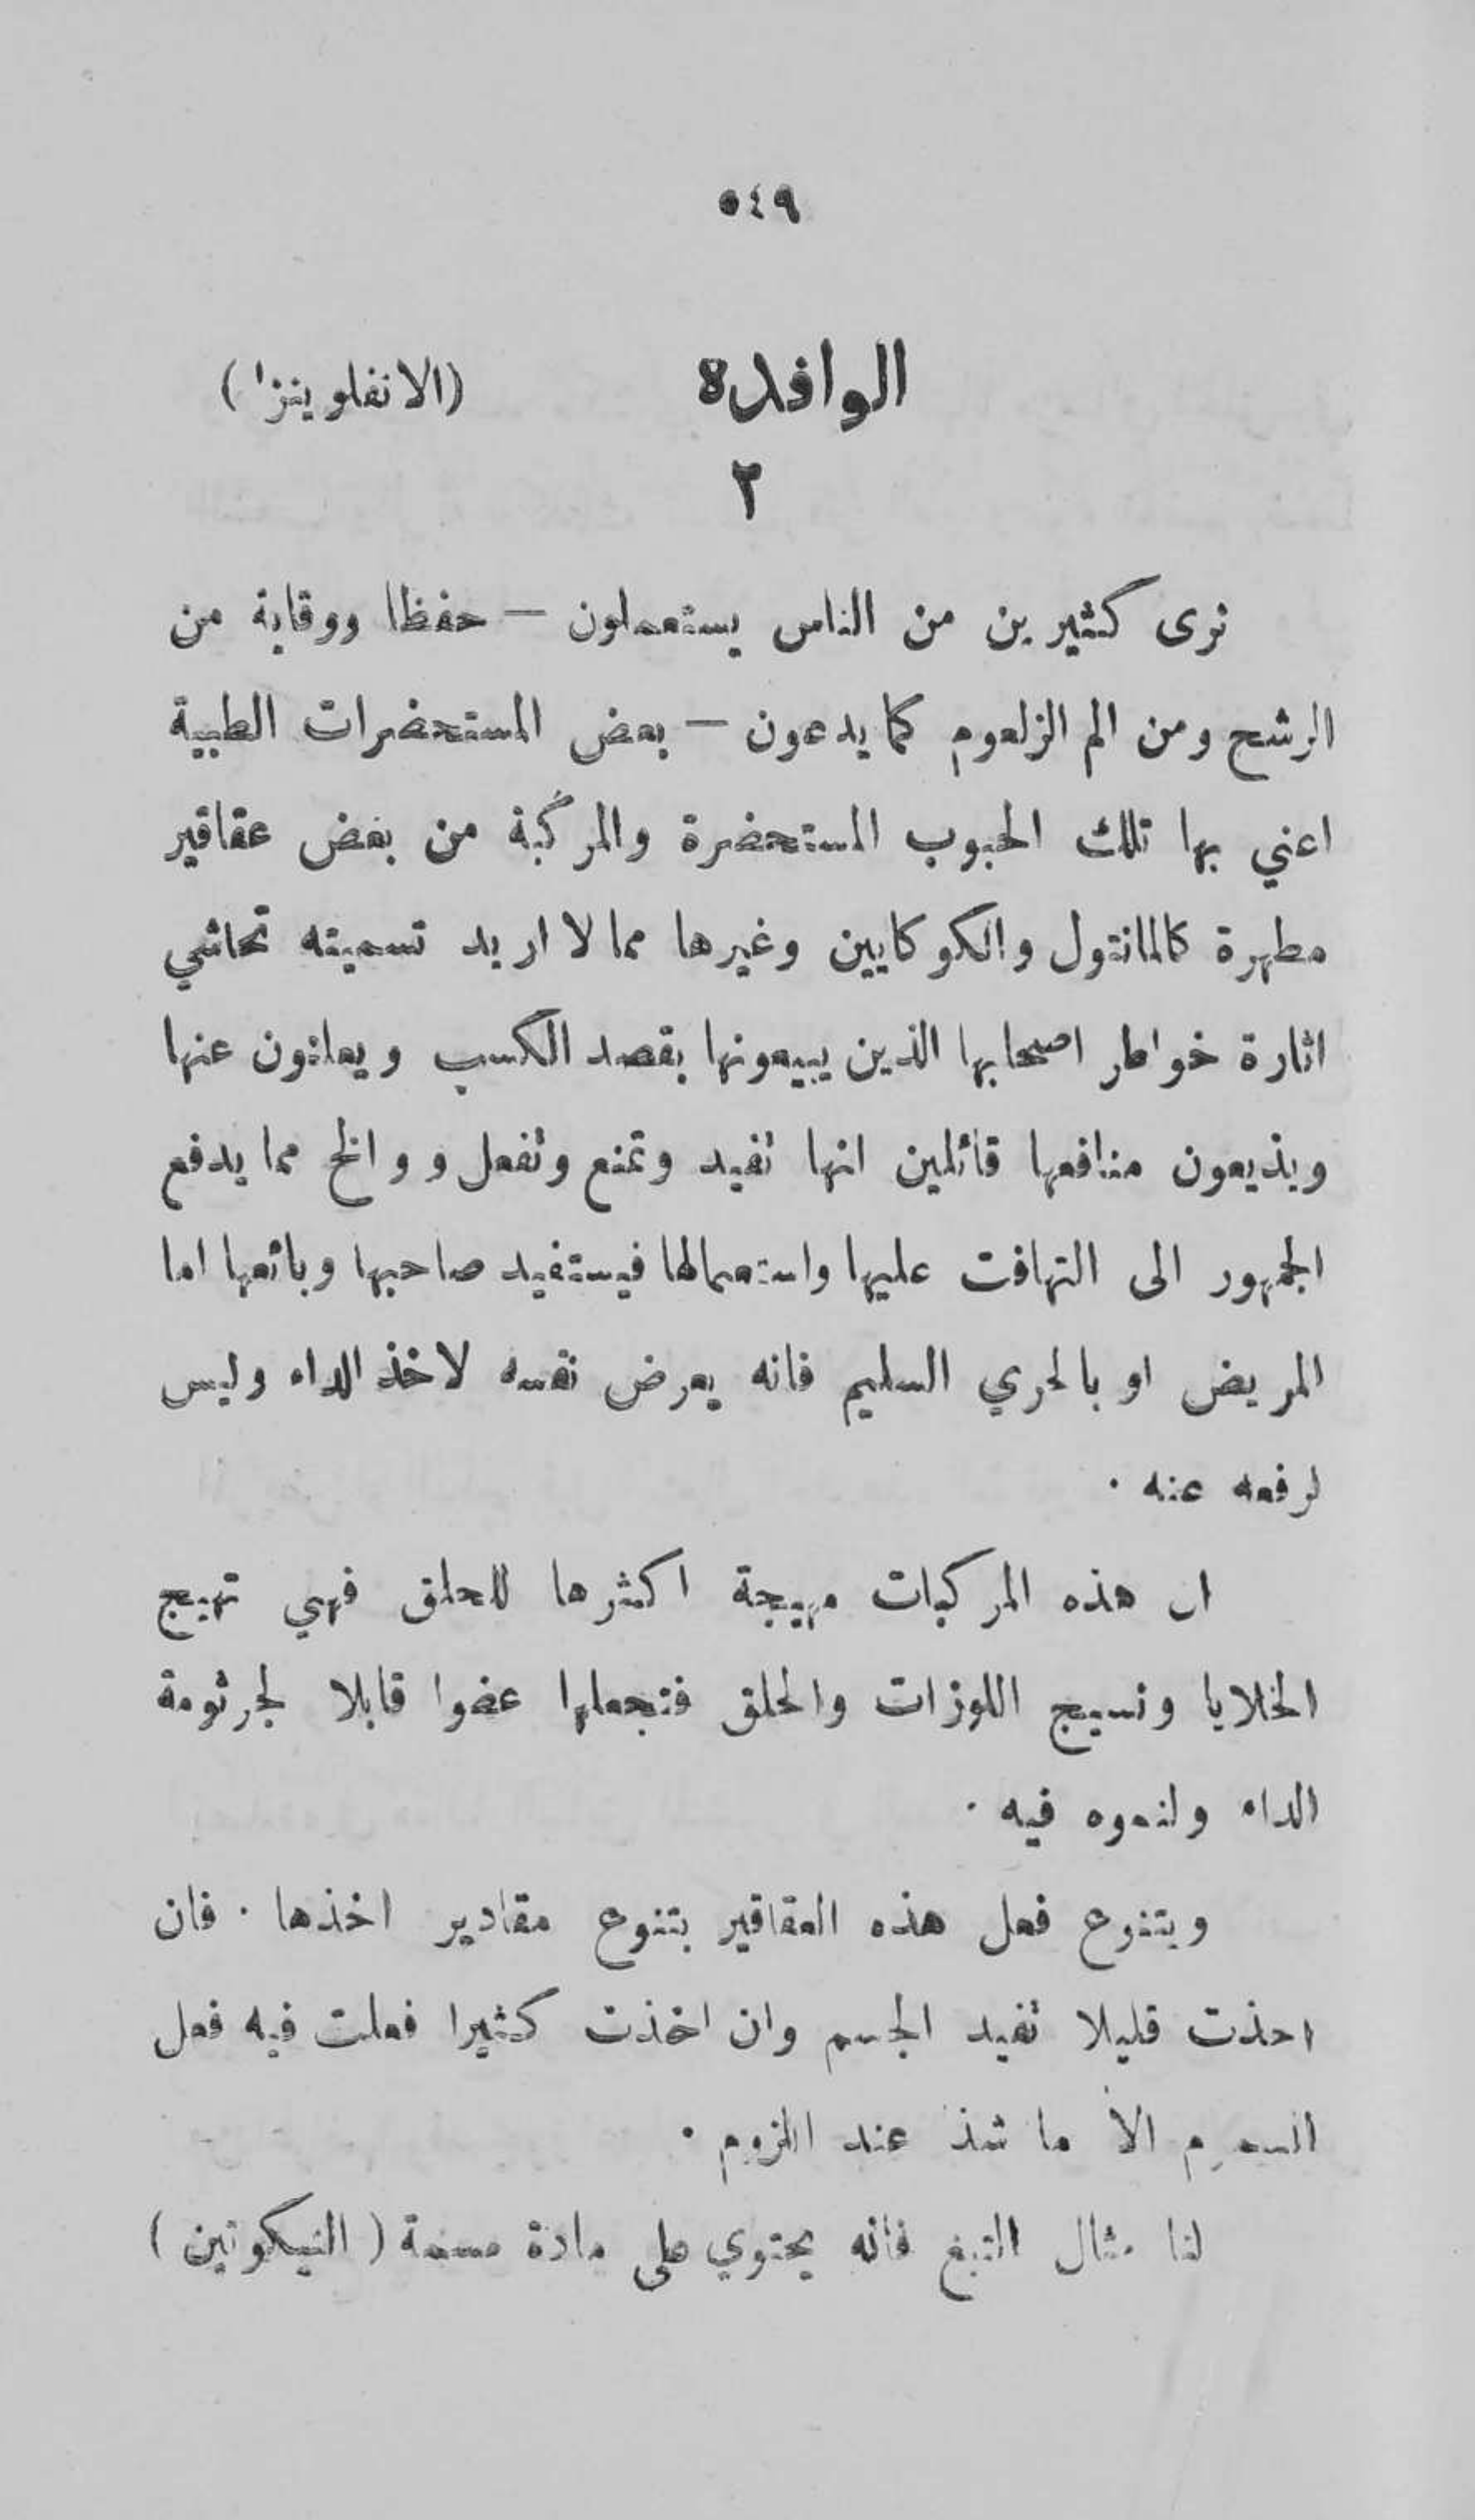 ٥٤٩
الوافده (الانفلوينزا)
٢
نرى كثيرين من الناس يستعملون — حفظا ووقاية من
الرشح ومن الم الزلعوم كما يدعون — بعض المستحضرات الطبية
اعني بها تلك الحبوب المستحضرة والمركّبة من بعض عقاقير
مطهرة كالمانتول والكوكايين وغيرها مما لا اريد تسميته تحاشي
اثارة خواطر اصحابها الذين يبيعونها بقصد الكسب ويعلنون عنها
ويذيعون منافعها قائلين انها تفيد وتمنع وتفعل و والخ مما يدفع
الجمهور الى التهافت عليها واستعمالها فيستفيد صاحبها وبائعها اما
المريض او بالحري السليم فانه يعرض نفسه لاخذ الداء وليس
لرفعه عنه ٠
ان هذه المركبات مهيجة اكثرها للحلق فهي تهيج
الخلايا ونسيج اللوزات والحلق فتجعلها عضوا قابلا لجرثومة
الداء ولنموه فيه ٠
ويتنوع فعل هذه العقاقير بتنوع مقادير اخذها ٠ فان
اخذت قليلا تفيد الجسم وان اخذت كثيرا فعلت فيه فعل
السموم الا ما شذ عند اللزوم ٠
لنا مثال التبغ فانه يحتوي على مادة مسمة (النيكوتين)